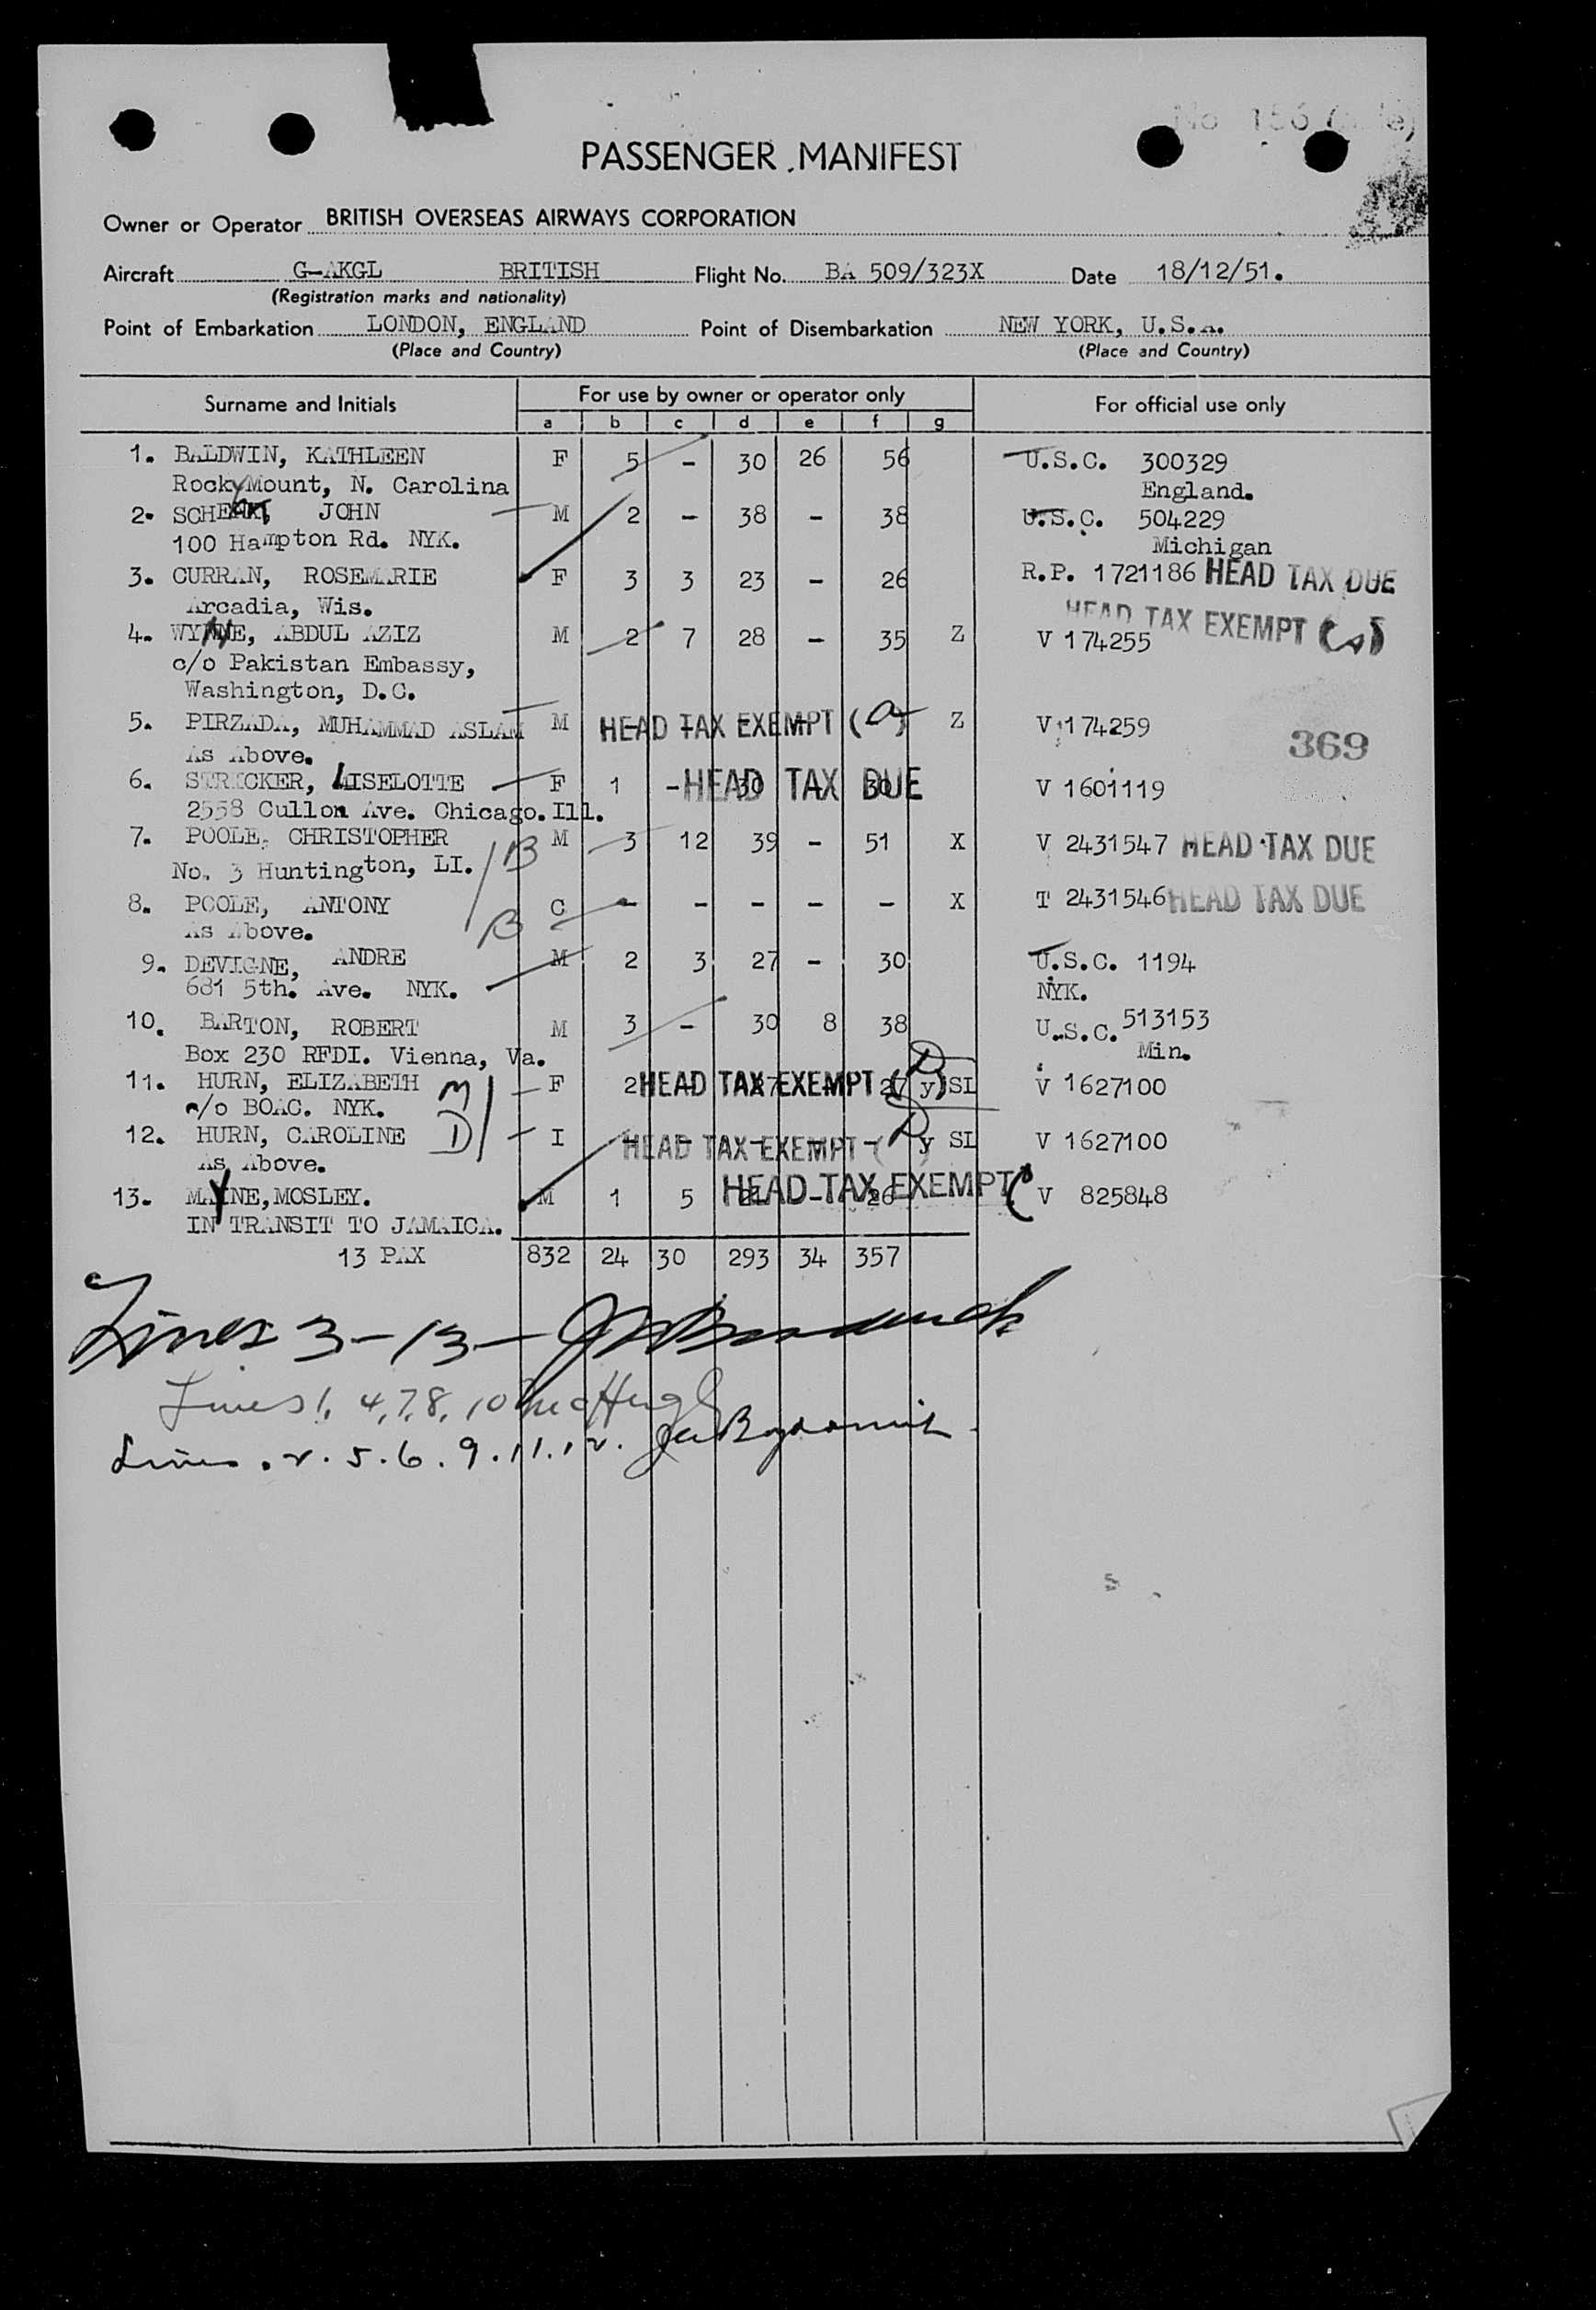 PASSENGER MANIFEST
Owner or Operator BRITISH OVERSEAS AIRWAYS CORPORATION
Aircraft G-AKGL BRITISH Flight No. BA 509/323X Date 18/12/51.
(Registration marks and nationality)
Point of Embarkation LONDON, ENGLAND Point of Disembarkation NEW YORK, U.S.A.
(Place and Country) (Place and Country)
Surname and Initials For use by owner or operator only For official use only
a b c d e f g
1. BALDWIN, KATHLEEN F 5 - 30 26 56 U.S.C. 300329
Rocky Mount, N. Carolina England.
2. JOHN M 2 - 38 - 38 U.S.C. 504229
100 Hampton Rd. NYK. Michigan
3. CURRAN, ROSEMARIE F 3 3 23 - 26 R.P. 1721186 HEAD TAX DUE
Arcadia, Wis. HEAD TAX EXEMPT
4. WYNNE, ABDUL AZIZ M 2 7 28 - 35 Z V 174255
c/o Pakistan Embassy,
Washington, D.C.
5. PIRZADA, MUHAMMAD ASLAM M HEAD TAX EXEMPT (a) Z V 174259
As Above. 369
6. STRICKER, LISELOTTE F 1 - HEAD TAX DUE 30 30 V 1601119
2558 Cullom Ave. Chicago. Ill.
7. POOLE, CHRISTOPHER M 3 12 39 - 51 X V 2431547 HEAD TAX DUE
No. 3 Huntington, LI. B
8. POOLE, ANTONY C - - - - - X T 2431546 HEAD TAX DUE
As Above. B
9. DEVIGNE, ANDRE M 2 3 27 - 30 U.S.C. 1194
681 5th. Ave. NYK. NYK.
10. BARTON, ROBERT M 3 - 30 8 38 U.S.C. 513153
Box 230 RFDI. Vienna, Va. Min.
11. HURN, ELIZABETH M F 2 HEAD TAX EXEMPT 27 y SL V 1627100
c/o BOAC. NYK.
12. HURN, CAROLINE D I HEAD TAX EXEMPT y SL V 1627100
As Above.
13. MAYNE, MOSLEY. M 1 5 HEAD TAX EXEMPT 26 V 825848
IN TRANSIT TO JAMAICA.
13 PAX 832 24 30 293 34 357
Lines 3-13-
Lines 1, 4, 7, 8, 10
Lines . 2. 5. 6. 9. 11. 12.